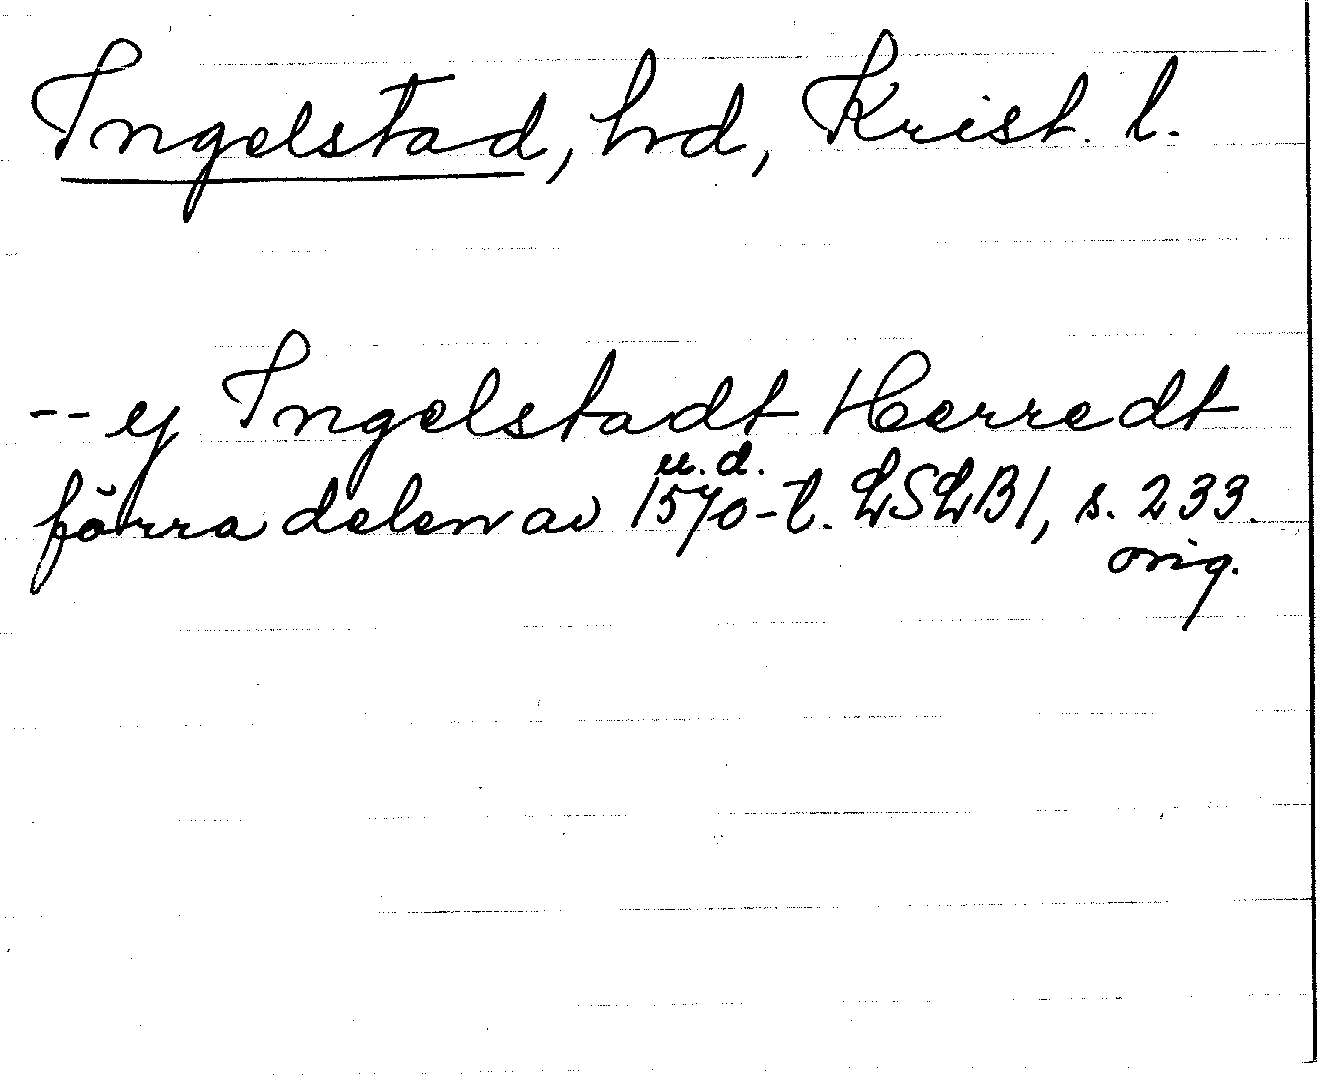 Ingelstad, hd, Krist. l.
-- y Ingelstadt Herredt
u.d.
förra delen av 1570-t. LSLB1, s. 233.
orig.